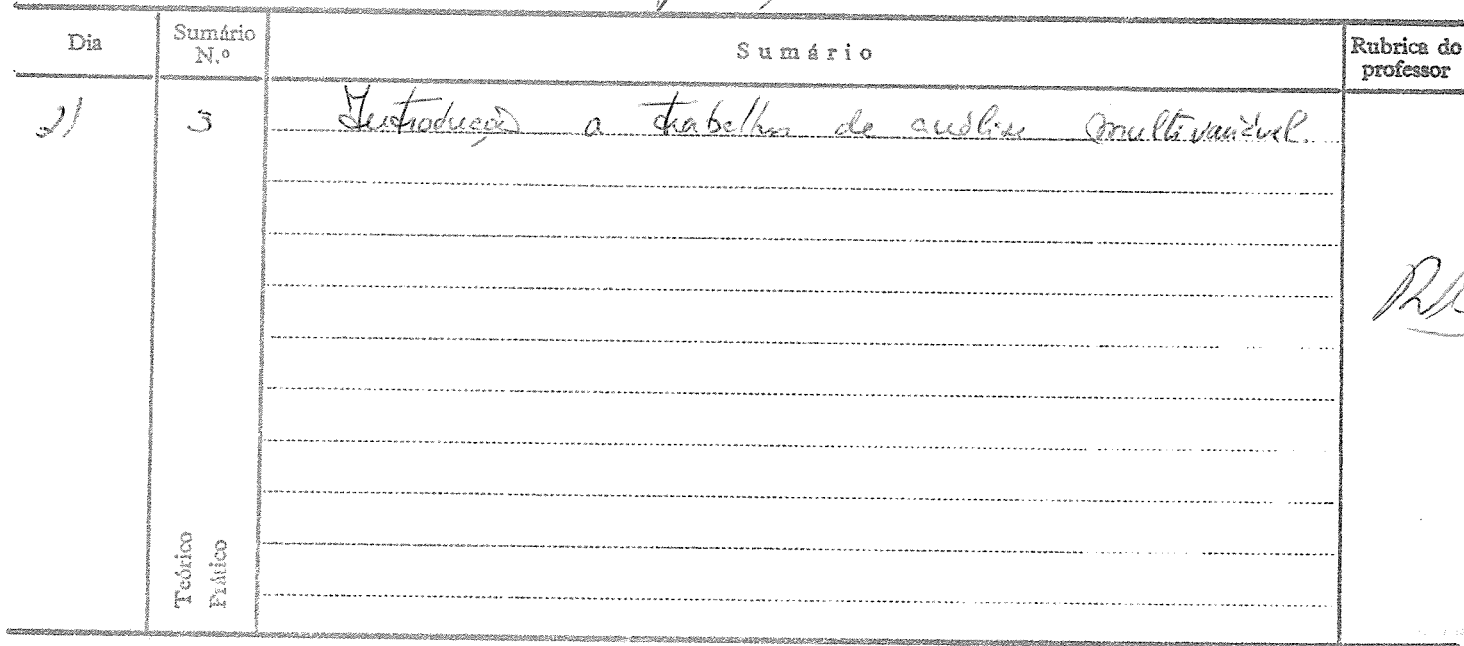 Dia
Sumário N.º
Sumário
Rubrica do professor
3
Introdução a trabalho de análise multivariável.
Teórico
Prático